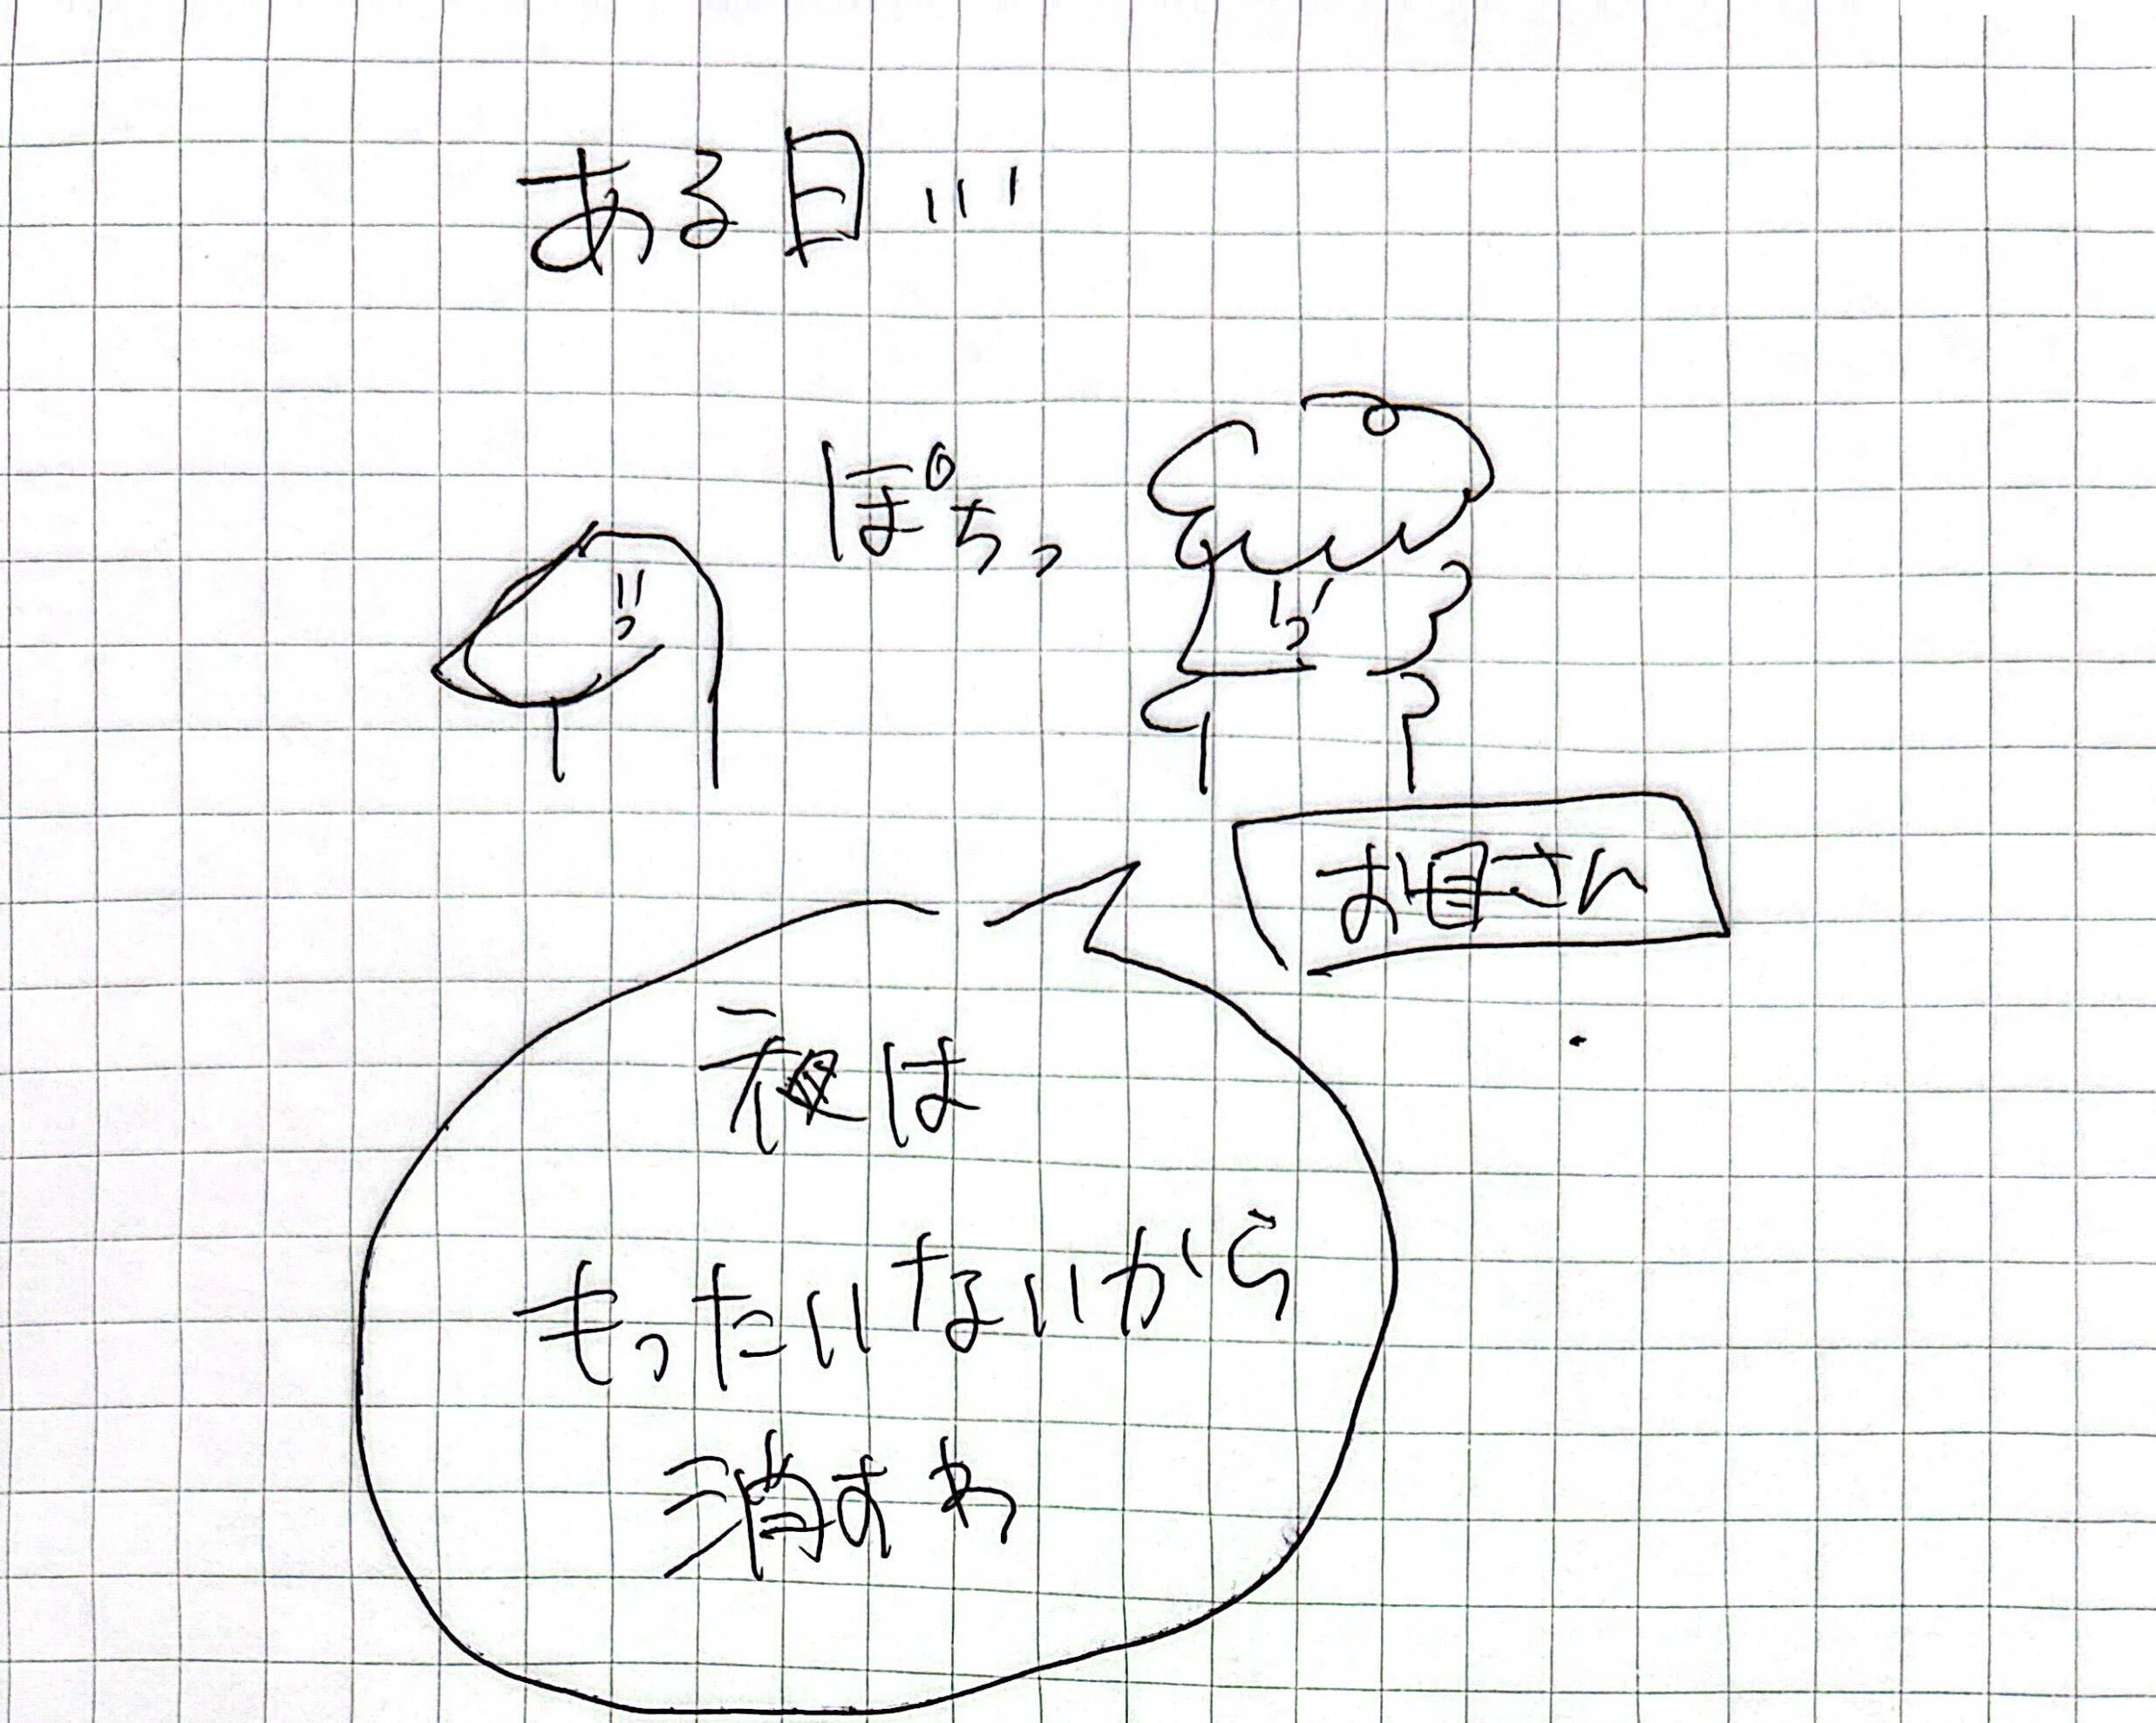 ある日…
ぽちっ
お母さん
夜は
もったいないから
消すわ